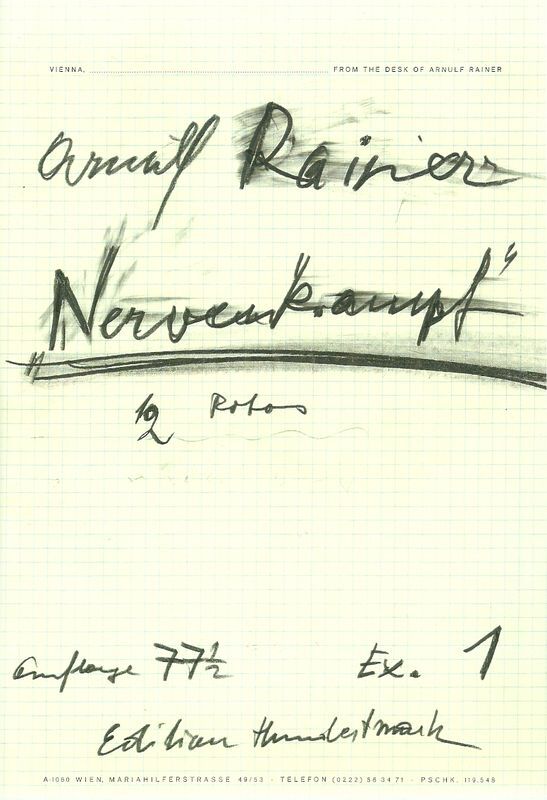 VIENNA, FROM THE DESK OF ARNULF RAINER
Arnulf Rainer
„Nervenkrampf"
12 Rotos
Auflage 77½ Ex. 1
Edition Hundertmark
A-1060 WIEN, MARIAHILFERSTRASSE 49/53 · TELEFON (0222) 56 34 71 · PSCHK. 119.548